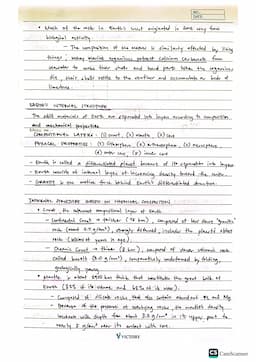 NO.:
DATE:
• Much of the rock in Earth's crust originated in some way from
biological activity
– The composition of the oceans is similarly affected by living
things; many marine organisms extract calcium carbonate from
seawater to make their shells and hard parts. When the organisms
die, their shells settle to the seafloor and accumulate as beds of
limestone.
EARTH'S INTERNAL STRUCTURE
The solid materials of Earth are separated into layers according to composition
and mechanical properties.
COMPOSITIONAL LAYERS: (1) crust, (2) mantle, (3) core
PHYSICAL PROPERTIES: (1) lithosphere, (2) asthenosphere, (3) mesosphere,
(4) outer core, (5) inner core
– Earth is called a differentiated planet because of its separation into layers
– Earth consists of internal layers of increasing density toward the center.
– GRAVITY is the motive force behind Earth's differentiated structure.
INTERNAL STRUCTURE BASED ON CHEMICAL COMPOSITION
• Crust, the outermost compositional layer of Earth
– Continental Crust → thicker
rock (about 2.7 g/cm³), strongly deformed, includes the planet's oldest
rock (billions of years in age).
– Oceanic Crust → thinner (8 km), composed of dense volcanic rock
called basalt (3.0 g/cm³), comparatively undeformed by folding,
geologically young
• Mantle, is about 2900 km thick that constitutes the great bulk of
Earth (82% of its volume and 68% of its mass).
– Composed of silicate rocks that also contain abundant Fe and Mg
because of the pressure of overlying rocks, the mantle's density
increases with depth from about 3.2 g/cm³ in its upper part to
nearly 5 g/cm³ near its contact with core.
VICTORY
CamScanner